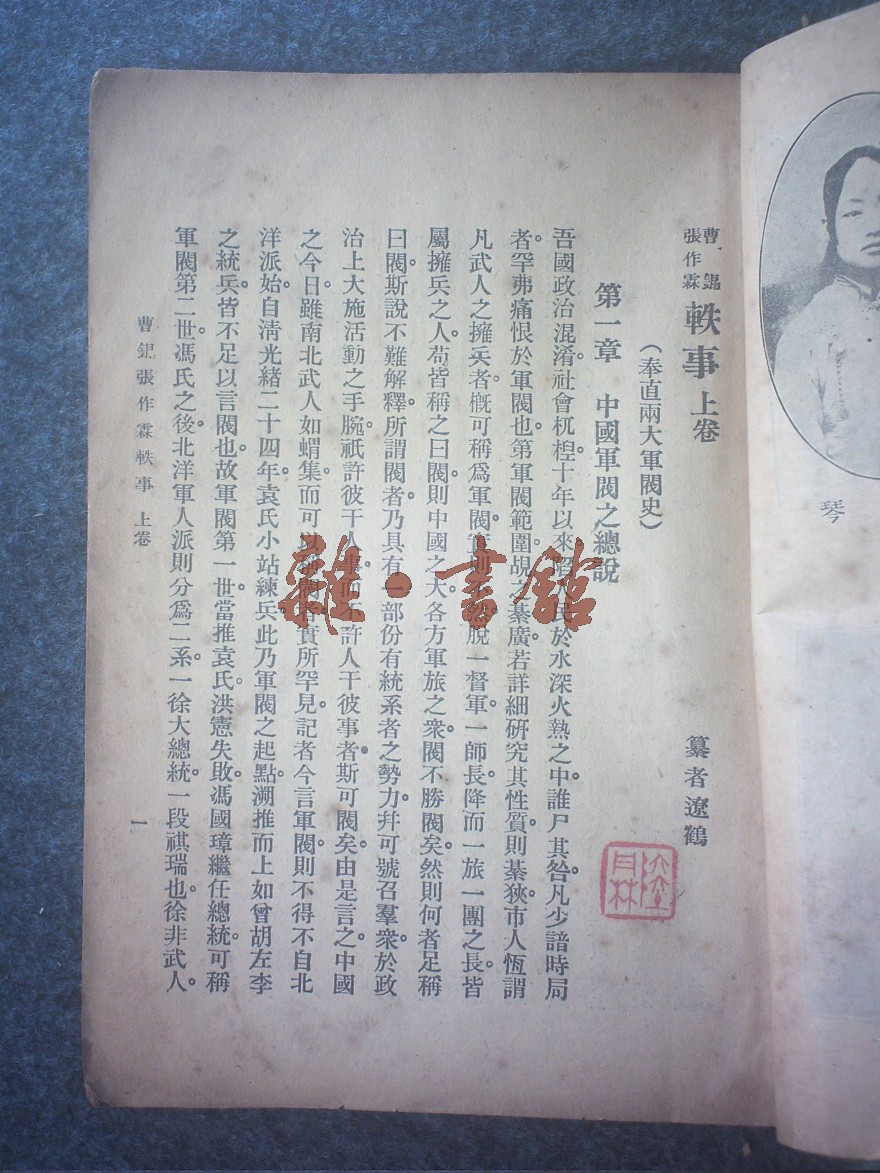 琴
曹錕
張作霖
軼事 上卷 纂者遼鶴
（奉直兩大軍閥史）
第一章 中國軍閥之總說
吾國政治混淆。社會杌棿。十年以來。陷人民於水深火熱之中。誰尸其咎。凡少諳時局
者。罕弗痛恨於軍閥也。第軍閥範圍。覘之綦廣。若詳細研究其性質。則綦狹。市人恆謂
凡武人之擁兵者。概可稱爲軍閥。實則不然。脫一督軍一師長降而一旅一團之長。皆
屬擁兵之人。苟皆稱之曰閥。則中國之大。各方軍旅之衆。閥不勝閥矣。然則何者足稱
曰閥。斯說不難解釋。所謂閥者。乃具有一部份有統系者之勢力。幷可號召羣衆。於政
治上大施活動之手腕。祇許彼干人事。而不許人干彼事者。斯可閥矣。由是言之。中國
之今日。雖南北武人如蝟集。而可以稱閥者。實所罕見。記者今言軍閥。則不得不自北
洋派始。自清光緒二十四年。袁氏小站練兵。此乃軍閥之起點。溯推而上。如曾胡左李
之統兵。皆不足以言閥也。故軍閥第一世。當推袁氏。洪憲失敗。馮國璋繼任總統。可稱
軍閥第二世。馮氏之後。北洋軍人派。則分爲二系。一徐大總統。一段祺瑞也。徐非武人。
曹錕張作霖軼事 上卷 一
雜·書館